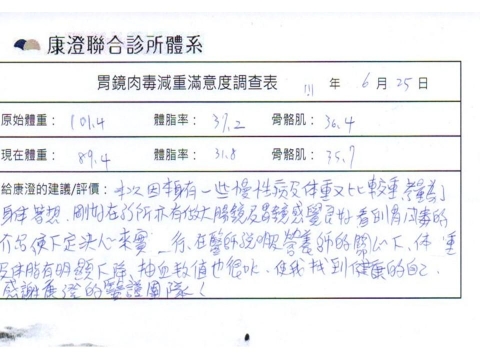 康澄聯合診所體系
胃鏡肉毒減重滿意度調查表 111 年 6 月 25 日
原始體重: 101.4 體脂率: 37.2 骨骼肌: 36.4
現在體重: 89.4 體脂率: 31.8 骨骼肌: 35.7
給康澄的建議/評價: 本次因賴有一些慢性病及体重又比較重,為了
身体著想,剛好在診所亦有做大腸鏡及胃鏡感覺良好看到胃肉毒的
介紹便下定決心來實行,在醫師說明及營養師的關心下,体重
及体脂有明顯下降,抽血数值也很Ok,使我找到健康的自己.
感謝康澄的醫護團隊!